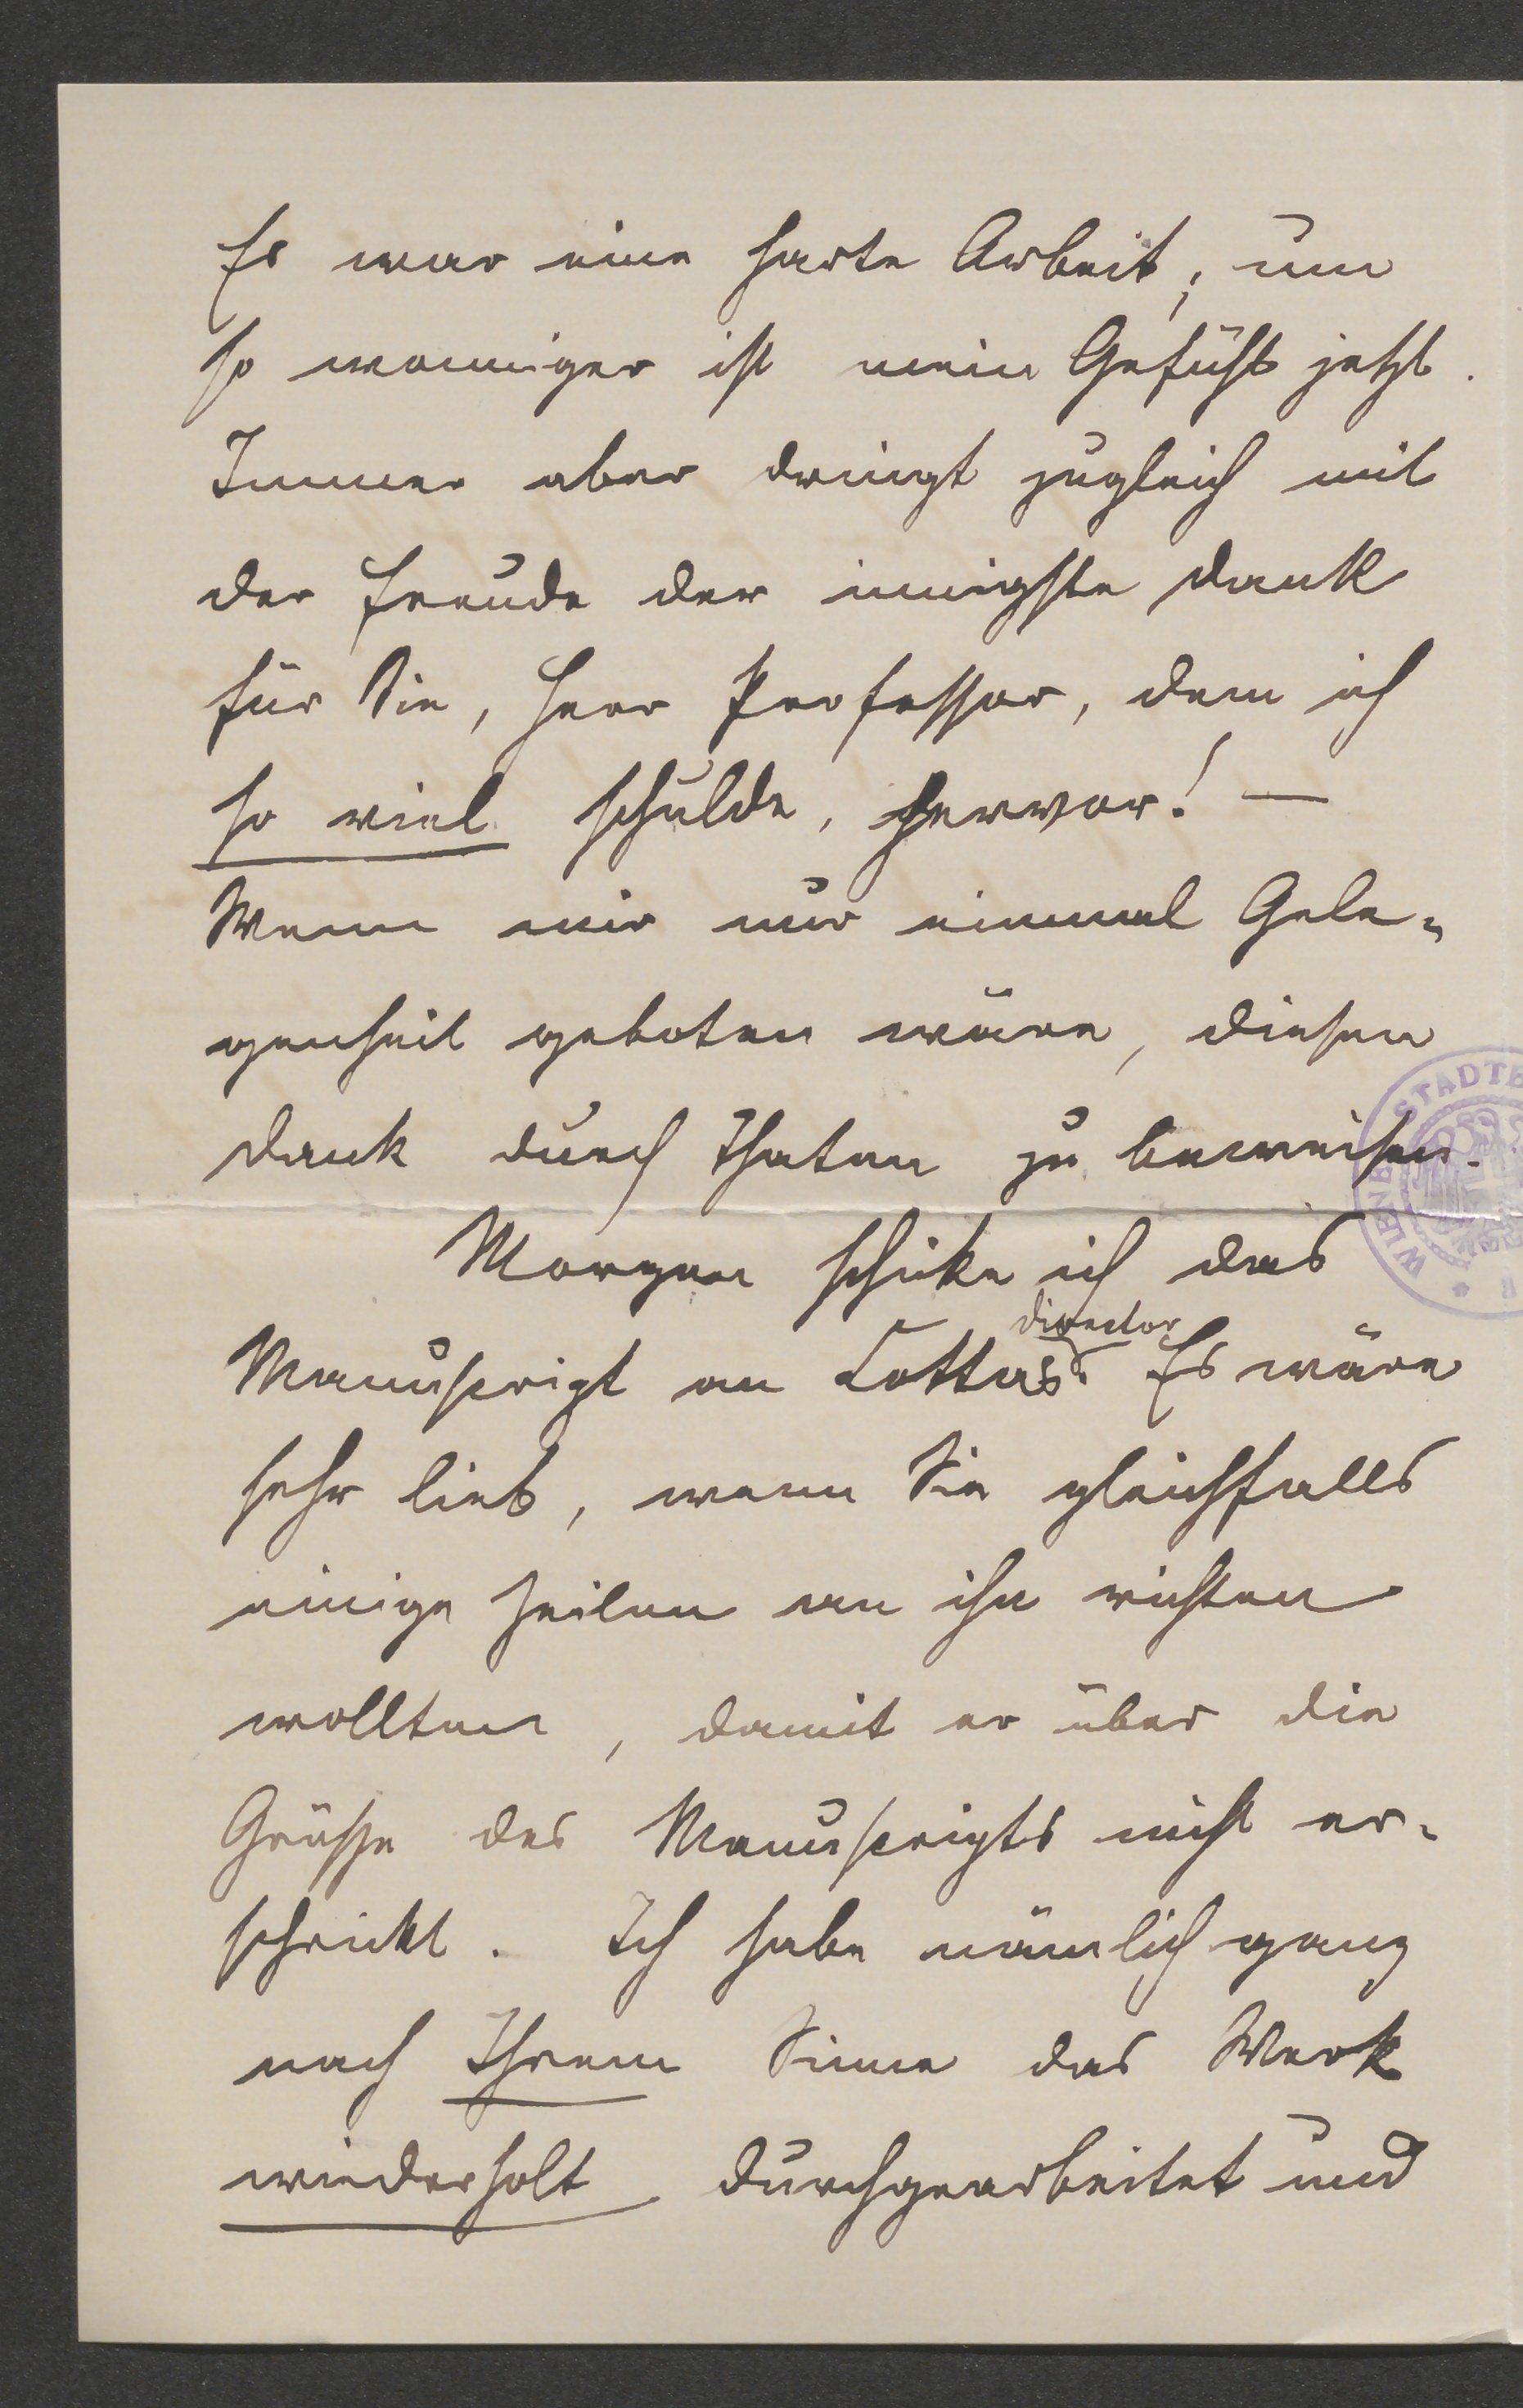 Es war eine harte Arbeit, um
so wonniger ist mein Gefühl jetzt.
Immer aber dringt zugleich mit
der Freude der innigste Dank
für Sie, Herr Professor, dem ich
so viel schulde, hervor! —
Wenn mir nur einmal Gele-
genheit geboten wäre, diesen
Dank durch Thaten zu beweisen.
Morgen schicke ich das
director
Manuscript an Cottas. Es wäre
sehr lieb, wenn Sie gleichfalls
einige Zeilen an ihn richten
wollten, damit er über die
Größe des Manuscripts nicht er-
schrickt. Ich habe nämlich ganz
nach Ihrem Sinne das Werk
wiederholt durchgearbeitet und
WIENER STADTB